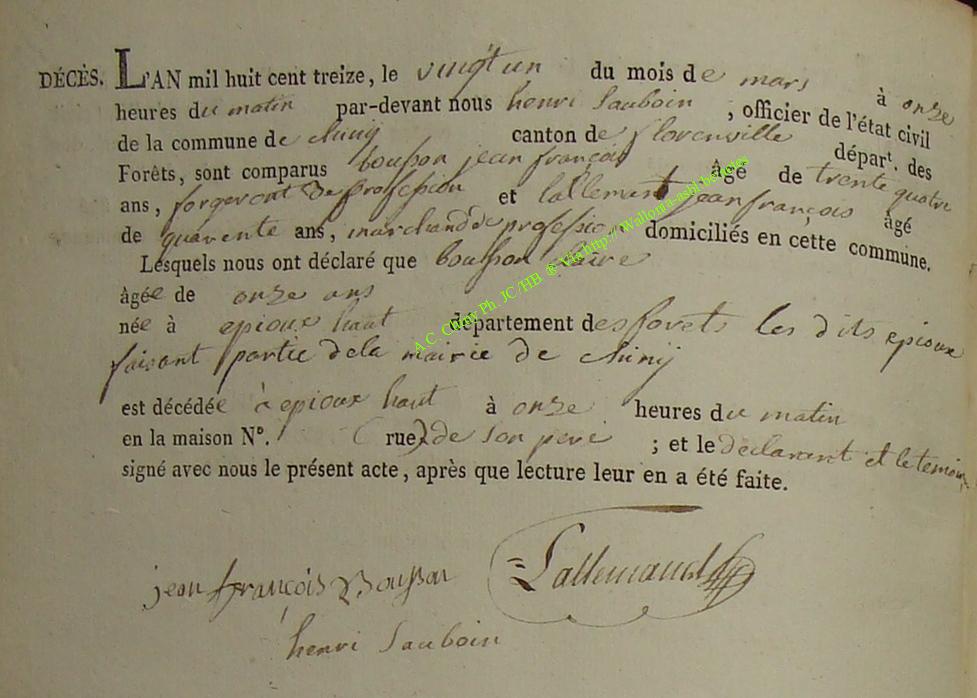 DÉCÈS. L'AN mil huit cent treize, le vingt un du mois de mars à onze
heures du matin par-devant nous henri Sauboin, officier de l'état civil
de la commune de chiny canton de florenville départ. des
Forêts, sont comparus bousson jean françois âgé de trente quatre
ans, forgeront de profession et lallement jean françois âgé
de quarente ans, marchand de profession domiciliés en cette commune.
Lesquels nous ont déclaré que bousson
âgée de onze ans
née à epioux haut département des forets les dits epioux
faisant partie dela mairie de chiny
est décédée à epioux haut à onze heures du matin
en la maison N°. (rue) de son pere ; et le declarant et le temoin
signé avec nous le présent acte, après que lecture leur en a été faite.
jean françois Bousson Lallemand
henri Sauboin
A.C. Chiny Ph. JC/HB @ Via http://Wallonia-asbl.be/gdes